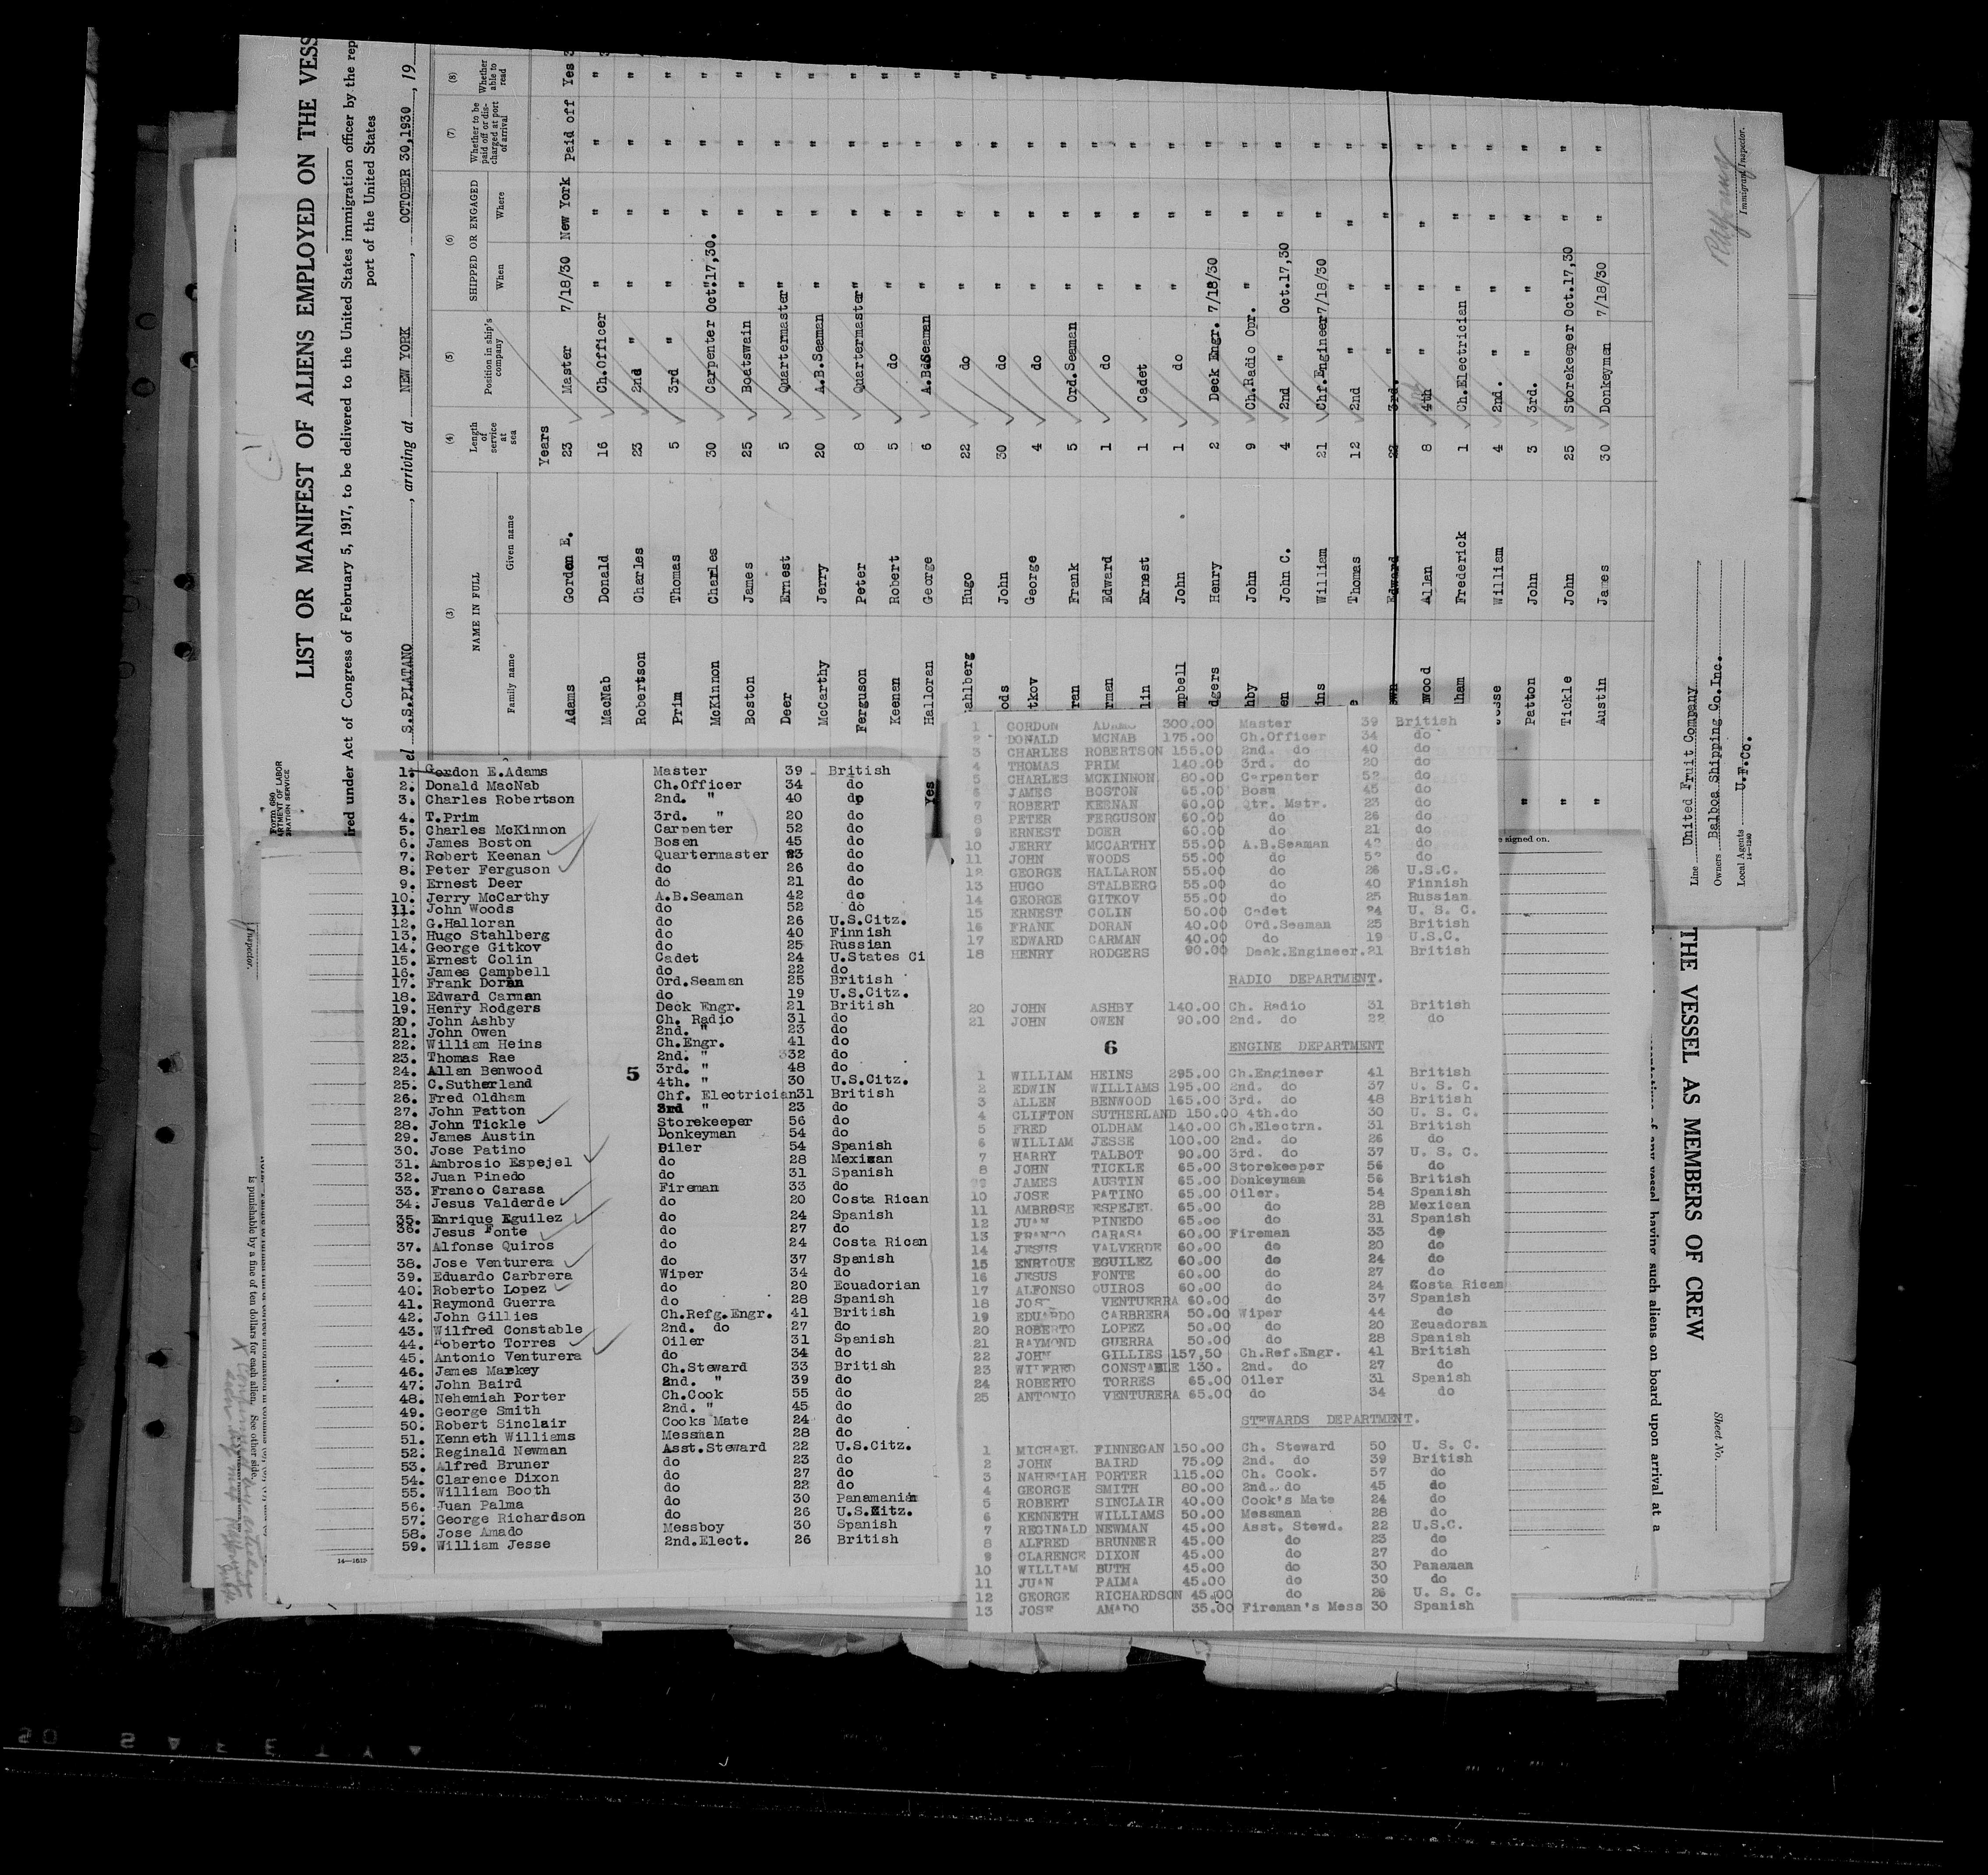 LIST OR MANIFEST OF ALIENS EMPLOYED ON THE VESS
red under Act of Congress of February 5, 1917, to be delivered to the United States immigration officer by the rep
port of the United States
el S.S.PLATANO, arriving at NEW YORK, OCTOBER 30,1930, 19
(3) (4) (5) (6) (7) (8)
NAME IN FULL Length of service at sea Position in ship's company SHIPPED OR ENGAGED Whether to be paid off or discharged at port of arrival Whether able to read
Family name Given name When Where
Years
Adams Gorden E. 23 Master 7/18/30 New York Paid off Yes
MacNab Donald 16 Ch.Officer " " " "
Robertson Charles 23 2nd " " " " "
Prim Thomas 5 3rd " " " " "
McKinnon Charles 30 Carpenter Oct.17,30. " " "
Boston James 25 Boatswain " " " "
Deer Ernest 5 Quartermaster " " " "
McCarthy Jerry 20 A.B.Seaman " " " "
Ferguson Peter 8 Quartermaster " " " "
Keenan Robert 5 do " " " "
Halloran George 6 A.B.Seaman " " " "
ahlberg Hugo 22 do " " " "
ods John 30 do " " " "
tkov George 4 do " " " "
ran Frank 5 Ord.Seaman " " " "
rman Edward 1 do " " "
lin Ernest 1 Cadet " " "
mpbell John 1 do " " "
dgers Henry 2 Deck Engr. 7/18/30 " "
hby John 9 Ch.Radio Opr. " " "
en John C. 4 2nd " Oct.17,30 " "
ins William 21 Chf.Engineer 7/18/30 " "
e Thomas 12 2nd " " " "
wn Edward 22 3rd. " " " "
wood Allan 8 4th " " " "
dham Frederick 1 Ch.Electrician " " "
sse William 4 2nd. " " " "
Patton John 3 3rd. " " " "
Tickle John 25 Storekeeper Oct.17,30 " "
Austin James 30 Donkeyman 7/18/30 " "
Line United Fruit Company
Owners Balboa Shipping Co.Inc.
Local Agents U.F.Co.
14—1240
Immigrant Inspector.
Form 680
ARTMENT OF LABOR
GRATION SERVICE
Yes
1. Gordon E.Adams Master 39 British
2. Donald MacNab Ch.Officer 34 do
3. Charles Robertson 2nd. " 40 do
4. T.Prim 3rd. " 20 do
5. Charles McKinnon Carpenter 52 do
6. James Boston Bosen 45 do
7. Robert Keenan Quartermaster 23 do
8. Peter Ferguson do 26 do
9. Ernest Deer do 21 do
10. Jerry McCarthy A.B.Seaman 42 do
11. John Woods do 52 do
12. G.Halloran do 26 U.S.Citz.
13. Hugo Stahlberg do 40 Finnish
14. George Gitkov do 25 Russian
15. Ernest Colin Cadet 24 U.States Ci
16. James Campbell do 22 do
17. Frank Doran Ord.Seaman 25 British
18. Edward Carman do 19 U.S.Citz.
19. Henry Rodgers Deck Engr. 21 British
20. John Ashby Ch. Radio 31 do
21. John Owen 2nd. " 23 do
22. William Heins Ch.Engr. 41 do
23. Thomas Rae 2nd. " 332 do
24. Allan Benwood 3rd. " 48 do
5
25. C.Sutherland 4th. " 30 U.S.Citz.
26. Fred Oldham Chf. Electrician31 British
27. John Patton 3rd " 23 do
28. John Tickle Storekeeper 56 do
29. James Austin Donkeyman 54 do
30. Jose Patino Oiler 54 Spanish
31. Ambrosio Espejel do 28 Mexican
32. Juan Pinedo do 31 Spanish
33. Franco Carasa Fireman 33 do
34. Jesus Valderde do 20 Costa Rican
35. Enrique Eguilez do 24 Spanish
36. Jesus Fonte do 27 do
37. Alfonse Quiros do 24 Costa Rican
38. Jose Venturera do 37 Spanish
39. Eduardo Carbrera Wiper 34 do
40. Roberto Lopez do 20 Ecuadorian
41. Raymond Guerra do 28 Spanish
42. John Gillies Ch.Refg.Engr. 41 British
43. Wilfred Constable 2nd. do 27 do
44. Roberto Torres Oiler 31 Spanish
45. Antonio Venturera do 34 do
46. James Markey Ch.Steward 33 British
47. John Baird 2nd. " 39 do
48. Nehemiah Porter Ch.Cook 55 do
49. George Smith 2nd. " 45 do
50. Robert Sinclair Cooks Mate 24 do
51. Kenneth Williams Messman 28 do
52. Reginald Newman Asst.Steward 22 U.S.Citz.
53. Alfred Bruner do 23 do
54. Clarence Dixon do 27 do
55. William Booth do 22 do
56. Juan Palma do 30 Panamanian
57. George Richardson do 26 U.S.Citz.
58. Jose Amado Messboy 30 Spanish
59. William Jesse 2nd.Elect. 26 British
1 GORDON ADAMS 300.00 Master 39 British
2 DONALD MCNAB 175.00 Ch.Officer 34 do
3 CHARLES ROBERTSON 155.00 2nd. do 40 do
4 THOMAS PRIM 140.00 3rd. do 20 do
5 CHARLES MCKINNON 80.00 Carpenter 52 do
6 JAMES BOSTON 65.00 Bosn 45 do
7 ROBERT KEENAN 60.00 Qtr. Mstr. 23 do
8 PETER FERGUSON 60.00 do 26 do
9 ERNEST DOER 60.00 do 21 do
10 JERRY MCCARTHY 55.00 A.B.Seaman 42 do
11 JOHN WOODS 55.00 do 52 do
12 GEORGE HALLARON 55.00 do 26 U.S.C.
13 HUGO STALBERG 55.00 do 40 Finnish
14 GEORGE GITKOV 55.00 do 25 Russian
15 ERNEST COLIN 50.00 Cadet 24 U. S. C.
16 FRANK DORAN 40.00 Ord.Seaman 25 British
17 EDWARD CARMAN 40.00 do 19 U.S.C.
18 HENRY RODGERS 90.00 Deck.Engineer. 21 British
RADIO DEPARTMENT.
20 JOHN ASHBY 140.00 Ch. Radio 31 British
21 JOHN OWEN 90.00 2nd. do 22 do
6 ENGINE DEPARTMENT
1 WILLIAM HEINS 295.00 Ch.Engineer 41 British
2 EDWIN WILLIAMS 195.00 2nd. do 37 U. S. C.
3 ALLEN BENWOOD 165.00 3rd. do 48 British
4 CLIFTON SUTHERLAND 150.00 4th.do 30 U. S. C.
5 FRED OLDHAM 140.00 Ch.Electrn. 31 British
6 WILLIAM JESSE 100.00 2nd. do 26 do
7 HARRY TALBOT 90.00 3rd. do 37 U. S. C.
8 JOHN TICKLE 65.00 Storekeeper 56 do
JAMES AUSTIN 65.00 Donkeyman 56 British
10 JOSE PATINO 65.00 Oiler. 54 Spanish
11 AMBROSE ESPEJEL 65.00 do 28 Mexican
12 JUAN PINEDO 65.00 do 31 Spanish
13 FRANCO CARASA 60.00 Fireman 33 do
14 JESUS VALVERDE 60.00 do 20 do
15 ENRIQUE EGUILEZ 60.00 do 24 do
16 JESUS FONTE 60.00 do 27 do
17 ALFONSO QUIROS 60.00 do 24 Costa Rican
18 JOSE VENTUERRA 60.00 do 37 Spanish
19 EDUARDO CARBRERA 50.00 Wiper 44 do
20 ROBERTO LOPEZ 50.00 do 20 Ecuadoran
21 RAYMOND GUERRA 50.00 do 28 Spanish
22 JOHN GILLIES 157,50 Ch.Ref.Engr. 41 British
23 WILFRED CONSTABLE 130. 2nd. do 27 do
24 ROBERTO TORRES 65.00 Oiler 31 Spanish
25 ANTONIO VENTURERA 65.00 do 34 do
STEWARDS DEPARTMENT.
1 MICHAEL FINNEGAN 150.00 Ch. Steward 50 U. S. C.
2 JOHN BAIRD 75.00 2nd. do 39 British
3 NAHEMIAH PORTER 115.00 Ch. Cook. 57 do
4 GEORGE SMITH 80.00 2nd. do 45 do
5 ROBERT SINCLAIR 40.00 Cook's Mate 24 do
6 KENNETH WILLIAMS 50.00 Messman 28 do
7 REGINALD NEWMAN 45.00 Asst. Stewd. 22 U.S.C.
8 ALFRED BRUNNER 45.00 do 23 do
9 CLARENCE DIXON 45.00 do 27 do
10 WILLIAM BUTH 45.00 do 30 Panaman
11 JUAN PALMA 45.00 do 30 do
12 GEORGE RICHARDSON 45.00 do 26 U. S. C.
13 JOSE AMADO 35.00 Fireman's Mess 30 Spanish
e signed on.
THE VESSEL AS MEMBERS OF CREW
having such aliens on board upon arrival at a
Sheet No.
Inspector.
is punishable by a fine of ten dollars for each alien. See other side.
SAFETY